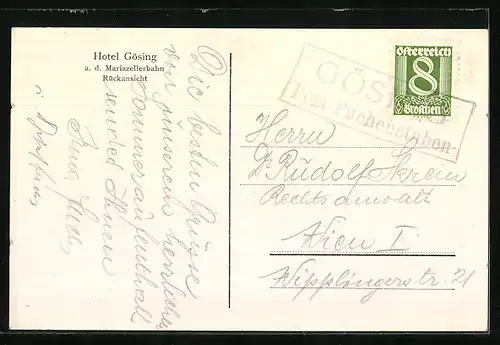 Hotel Gösing
a. d. Mariazellerbahn
Rückansicht
Die besten Grüsse
von unserem herrlichen
Sommeraufenthalt
sendet Ihnen
Österreich
8
Groschen
GÖSING
Post Puchenstuben
Herrn
Dr Rudolf
Rechtsanwalt
Wien I.
Wipplingerstr. 21